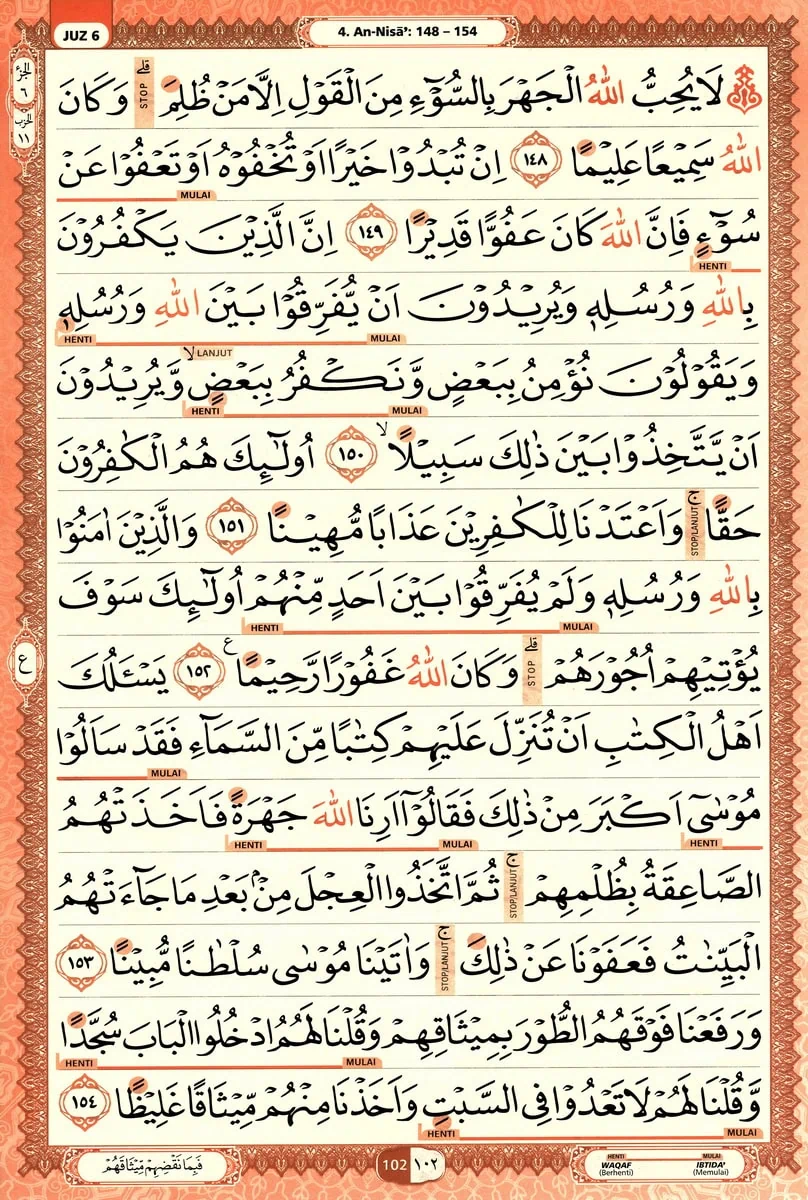 JUZ 6
4. An-Nisā': 148 – 154
الجزء
٦
الحزب
١١
لَا يُحِبُّ اللّٰهُ الْجَهْرَ بِالسُّوْۤءِ مِنَ الْقَوْلِ اِلَّا مَنْ ظُلِمَ ۗ وَكَانَ
STOP
اللّٰهُ سَمِيْعًا عَلِيْمًا ١٤٨ اِنْ تُبْدُوْا خَيْرًا اَوْ تُخْفُوْهُ اَوْ تَعْفُوْا عَنْ
MULAI
سُوْۤءٍ فَاِنَّ اللّٰهَ كَانَ عَفُوًّا قَدِيْرًا ١٤٩ اِنَّ الَّذِيْنَ يَكْفُرُوْنَ
HENTI
بِاللّٰهِ وَرُسُلِهٖ وَيُرِيْدُوْنَ اَنْ يُّفَرِّقُوْا بَيْنَ اللّٰهِ وَرُسُلِهٖ
MULAI HENTI
وَيَقُوْلُوْنَ نُؤْمِنُ بِبَعْضٍ وَّنَكْفُرُ بِبَعْضٍۙ وَّيُرِيْدُوْنَ
LANJUT
MULAI HENTI
اَنْ يَّتَّخِذُوْا بَيْنَ ذٰلِكَ سَبِيْلًاۙ ١٥٠ اُولٰۤىِٕكَ هُمُ الْكٰفِرُوْنَ
حَقًّاۚ وَاَعْتَدْنَا لِلْكٰفِرِيْنَ عَذَابًا مُّهِيْنًا ١٥١ وَالَّذِيْنَ اٰمَنُوْا
STOP/LANJUT
بِاللّٰهِ وَرُسُلِهٖ وَلَمْ يُفَرِّقُوْا بَيْنَ اَحَدٍ مِّنْهُمْ اُولٰۤىِٕكَ سَوْفَ
MULAI HENTI
يُؤْتِيْهِمْ اُجُوْرَهُمْ ۗ وَكَانَ اللّٰهُ غَفُوْرًا رَّحِيْمًا ࣖ ١٥٢ يَسْـَٔلُكَ
STOP
ع
اَهْلُ الْكِتٰبِ اَنْ تُنَزِّلَ عَلَيْهِمْ كِتٰبًا مِّنَ السَّمَاۤءِ فَقَدْ سَاَلُوْا
MULAI
مُوْسٰٓى اَكْبَرَ مِنْ ذٰلِكَ فَقَالُوْٓا اَرِنَا اللّٰهَ جَهْرَةً فَاَخَذَتْهُمُ
HENTI MULAI HENTI
الصَّاعِقَةُ بِظُلْمِهِمْۚ ثُمَّ اتَّخَذُوا الْعِجْلَ مِنْۢ بَعْدِ مَا جَاۤءَتْهُمُ
STOP/LANJUT
الْبَيِّنٰتُ فَعَفَوْنَا عَنْ ذٰلِكَۚ وَاٰتَيْنَا مُوْسٰى سُلْطٰنًا مُّبِيْنًا ١٥٣
STOP/LANJUT
وَرَفَعْنَا فَوْقَهُمُ الطُّوْرَ بِمِيْثَاقِهِمْ وَقُلْنَا لَهُمُ ادْخُلُوا الْبَابَ سُجَّدًا
MULAI HENTI
وَّقُلْنَا لَهُمْ لَا تَعْدُوْا فِى السَّبْتِ وَاَخَذْنَا مِنْهُمْ مِّيْثَاقًا غَلِيْظًا ١٥٤
MULAI HENTI
فَبِمَا نَقْضِهِمْ مِّيْثَاقَهُمْ
102 ١٠٢
HENTI MULAI
WAQAF IBTIDA'
(Berhenti) (Memulai)